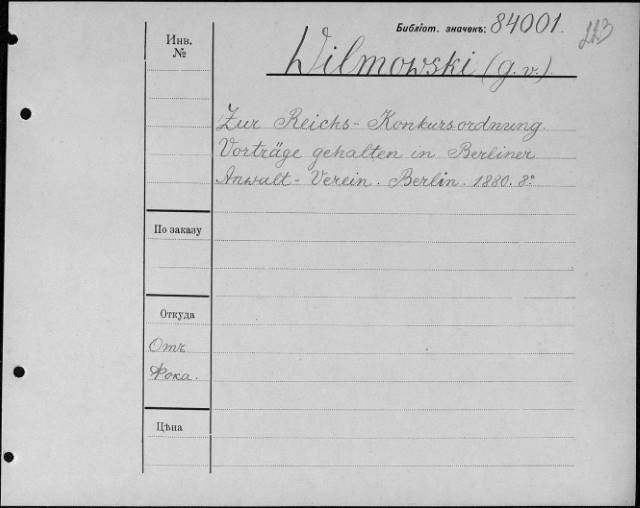 Библіот. значекъ: 84001. 223
Инв.
№
Wilmowski (g. v.).
Zur Reichs-Konkursordnung
Vorträge gehalten in Berliner
Anwalt-Verein. Berlin. 1880. 8º
По заказу
Откуда
Отъ
Фока.
Цѣна